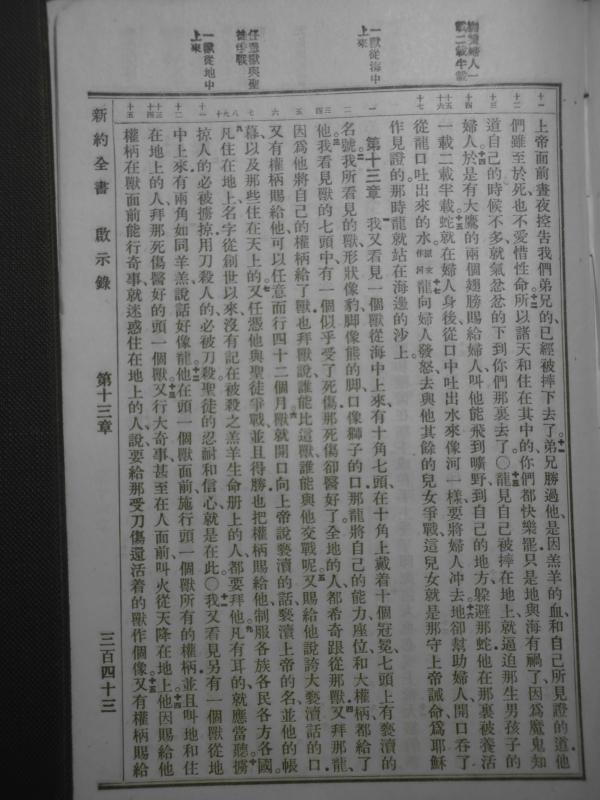 載二載半載
一獸從海中
上來
任憑獸與聖
徒爭戰
一獸從地中
上來
十一 上帝面前晝夜控告我們弟兄的已經被摔下去了弟兄勝過他是因羔羊的血和自己所見證的道他
十二 們雖至於死也不愛惜性命所以諸天和住在其中的你們都快樂罷只是地與海有禍了因爲魔鬼知
十三 道自己的時候不多就氣忿忿的下到你們那裏去了○龍見自己被摔在地上就逼迫那生男孩子的
十四 婦人於是有大鷹的兩個翅膀賜給婦人叫他能飛到曠野到自己的地方躱避那蛇他在那裏被養活
十五 十六 一載二載半載蛇就在婦人身後從口中吐出水來像河一樣要將婦人冲去地卻幫助婦人開口吞了
十七 從龍口吐出來的水龍向婦人發怒去與他其餘的兒女爭戰這兒女就是那守上帝誡命爲耶穌
作見證的那時龍就站在海邊的沙上
一 第十三章 我又看見一個獸從海中上來有十角七頭在十角上戴着十個冠冕七頭上有褻瀆的
二 名號我所看見的獸形狀像豹脚像熊的脚口像獅子的口那龍將自己的能力座位和大權柄都給了
三 四 他我看見獸的七頭中有一個似乎受了死傷那死傷卻醫好了全地的人都希奇跟從那獸又拜那龍
五 因爲他將自己的權柄給了獸也拜獸說誰能比這獸誰能與他交戰呢又賜給他說誇大褻瀆話的口
六 又有權柄賜給他可以任意而行四十二個月獸就開口向上帝說褻瀆的話褻瀆上帝的名並他的帳
七 幕以及那些住在天上的又任憑他與聖徒爭戰並且得勝也把權柄賜給他制服各族各民各方各國
八 九 十 凡住在地上名字從創世以來沒有記在被殺之羔羊生命册上的人都要拜他凡有耳的就應當聽擄
十一 掠人的必被擄掠用刀殺人的必被刀殺聖徒的忍耐和信心就是在此○我又看見另有一個獸從地
十二 中上來有兩角如同羊羔說話好像龍他在頭一個獸面前施行頭一個獸所有的權柄並且叫地和住
十三 十四 在地上的人拜那死傷醫好的頭一個獸又行大奇事甚至在人面前叫火從天降在地上他因賜給他
十五 權柄在獸面前能行奇事就迷惑住在地上的人說要給那受刀傷還活着的獸作個像又有權柄賜給
新約全書 啟示錄 第十三章 三百四十三